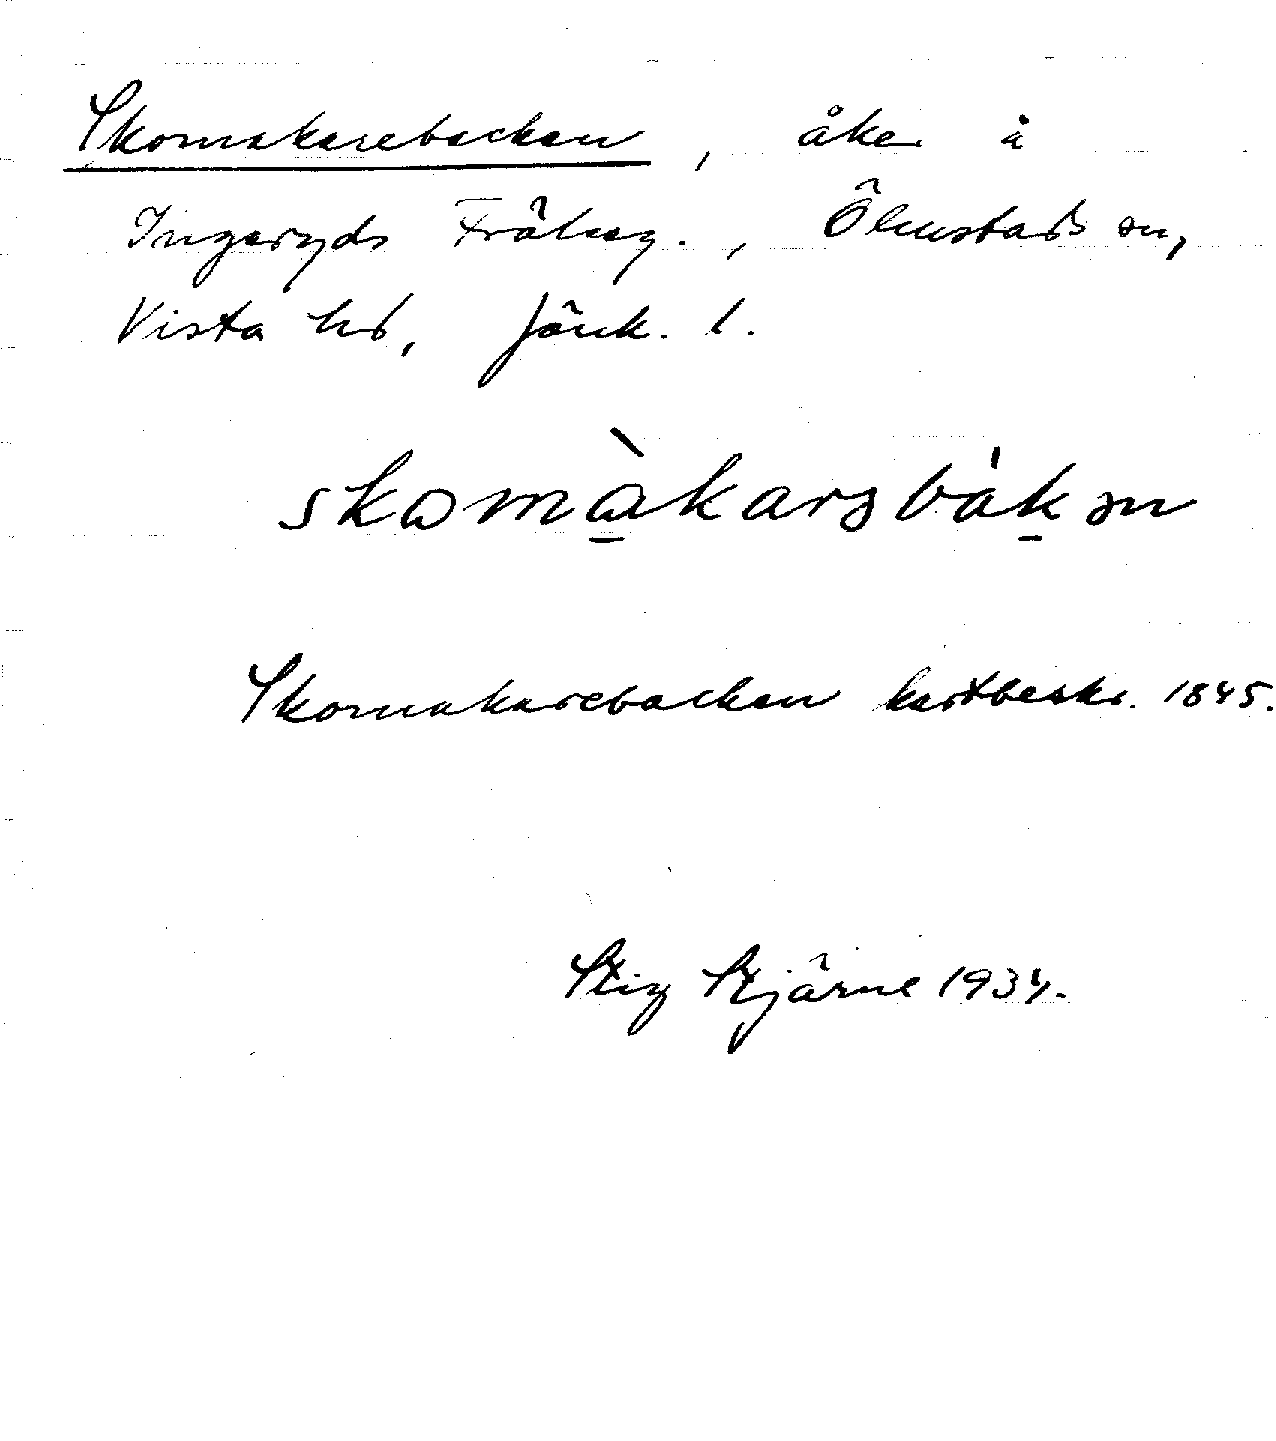 Skomakarebacken, åker å
Ingaryds Frälseg., Ölmstads sn,
Vista hd, Jönk. l.
skomàkarəbákən
Skomakarebacken kartbeskr. 1845.
Stig Stjärne 1934.